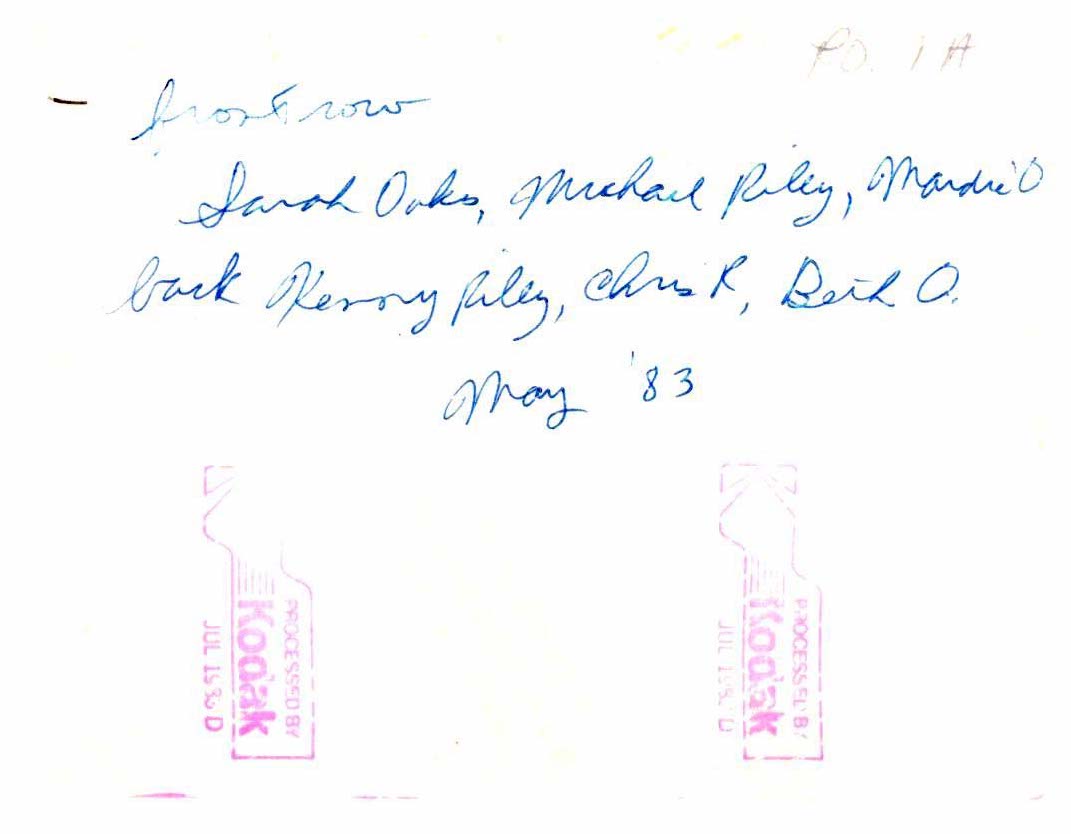 PO. 1A
front row
Sarah Oaks, Michael Riley, Mardie O
back Kenny Riley, Chris R, Beth O.
May '83
PROCESSED BY
Kodak
JUL 1983 D
PROCESSED BY
Kodak
JUL 1983 D